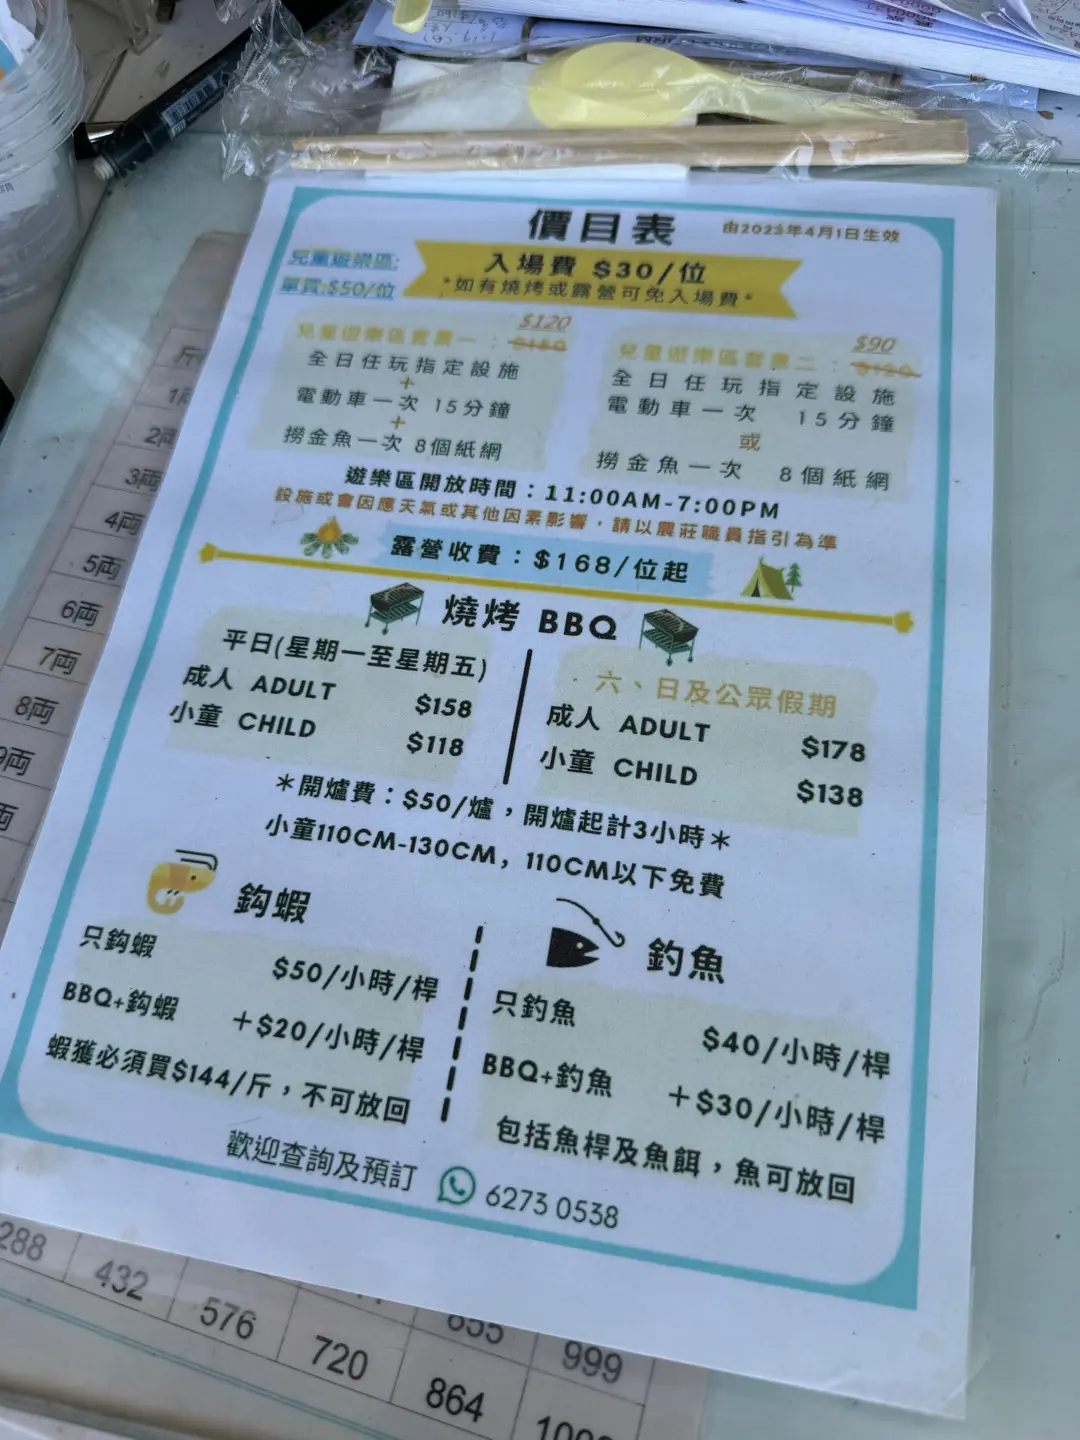 價目表
由2023年4月1日生效
兒童遊樂區:
單買:$50/位
入場費 $30/位
*如有燒烤或露營可免入場費*
兒童遊樂區套票一：$150 $120
全日任玩指定設施
+
電動車一次 15分鐘
+
撈金魚一次 8個紙網
兒童遊樂區套票二：$120 $90
全日任玩指定設施
電動車一次 15分鐘
或
撈金魚一次 8個紙網
遊樂區開放時間：11:00AM-7:00PM
設施或會因應天氣或其他因素影響，請以農莊職員指引為準
露營收費：$168/位起
燒烤 BBQ
平日(星期一至星期五)
成人 ADULT $158
小童 CHILD $118
六、日及公眾假期
成人 ADULT $178
小童 CHILD $138
＊開爐費：$50/爐，開爐起計3小時＊
小童110CM-130CM，110CM以下免費
鈎蝦
只鈎蝦 $50/小時/桿
BBQ+鈎蝦 +$20/小時/桿
蝦獲必須買$144/斤，不可放回
釣魚
只釣魚 $40/小時/桿
BBQ+釣魚 +$30/小時/桿
包括魚桿及魚餌，魚可放回
歡迎查詢及預訂 6273 0538
斤
2両
3両
4両
5両
6両
7両
8両
9両
288
432
576
720
864
999